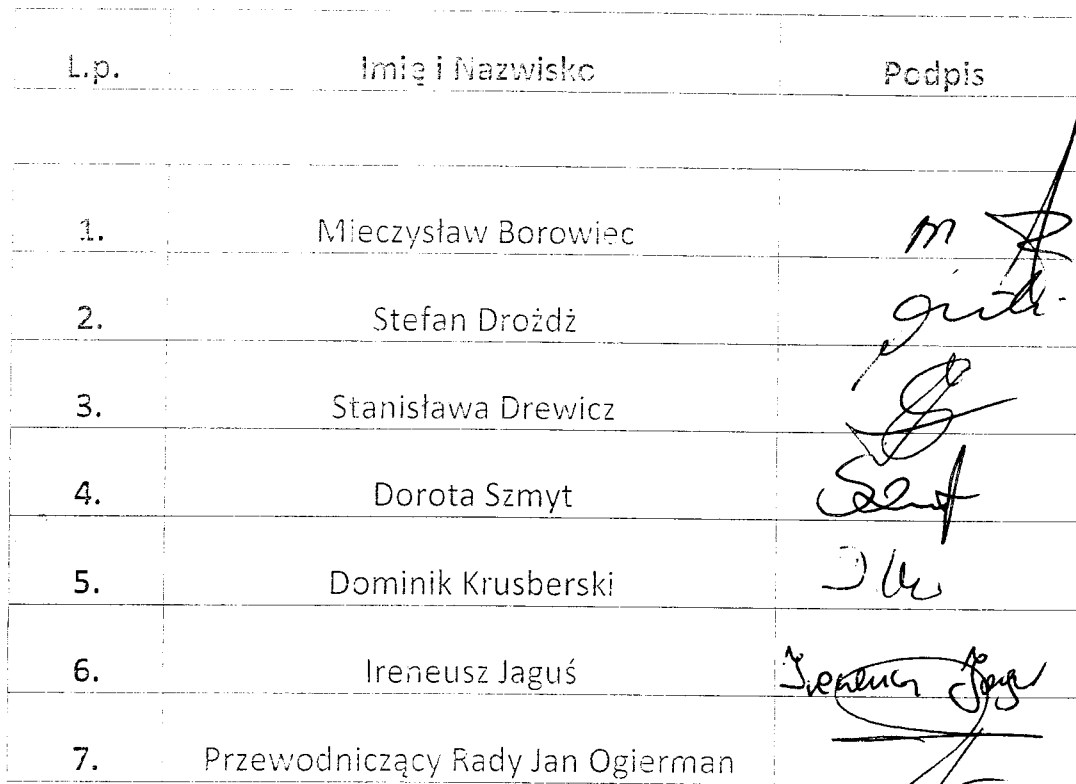 L.p. Imię i Nazwisko Podpis
1. Mieczysław Borowiec
2. Stefan Drożdż
3. Stanisława Drewicz
4. Dorota Szmyt
5. Dominik Krusberski
6. Ireneusz Jaguś
7. Przewodniczący Rady Jan Ogierman